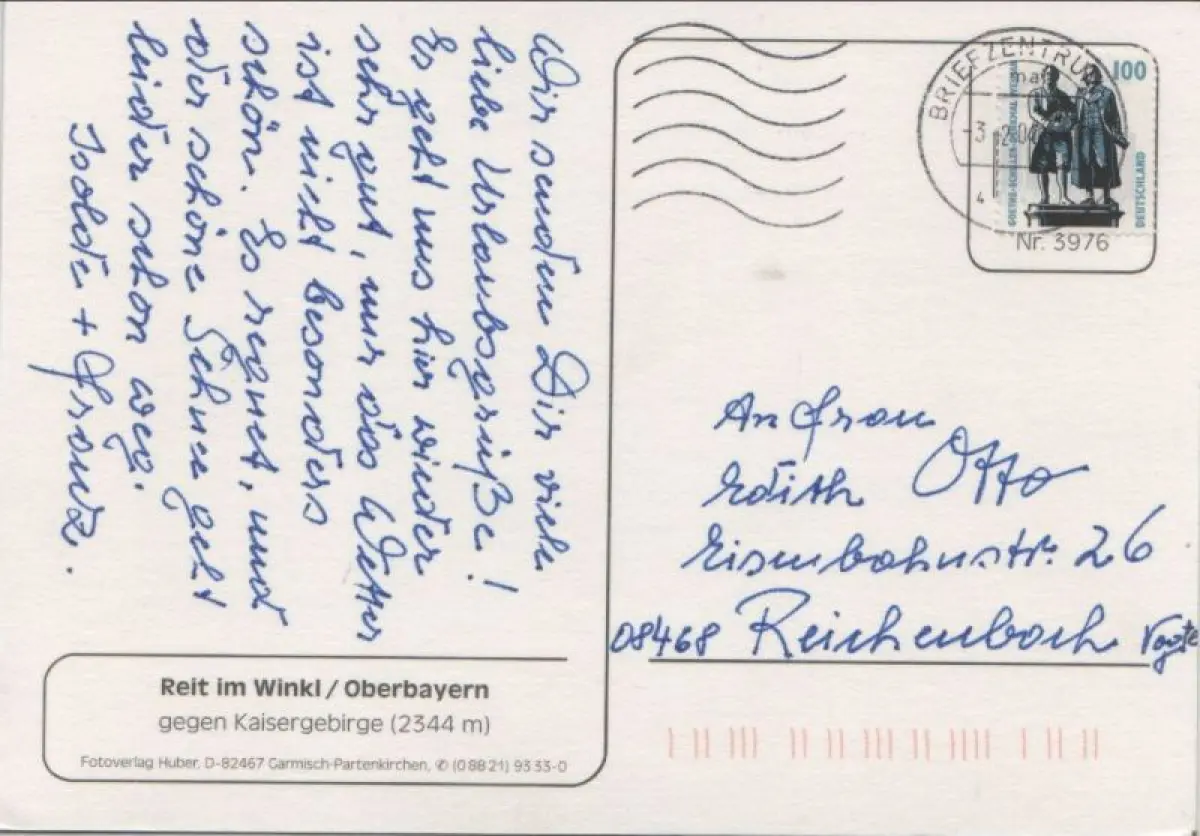 Wir senden Dir viele
liebe Urlaubsgrüße!
Es geht uns hier wieder
sehr gut, nur das Wetter
ist nicht besonders
schön. Es regnet, und
der schöne Schnee geht
leider schon weg.
Isolde + Franz.
Reit im Winkl / Oberbayern
gegen Kaisergebirge (2344 m)
Fotoverlag Huber, D-82467 Garmisch-Partenkirchen, ✆ (0 88 21) 93 33-0
BRIEFZENTRUM
100
GOETHE-SCHILLER-DENKMAL WEIMAR
DEUTSCHLAND
Nr. 3976
An Frau
Edith Otto
Eisenbahnstr. 26
08468 Reichenbach